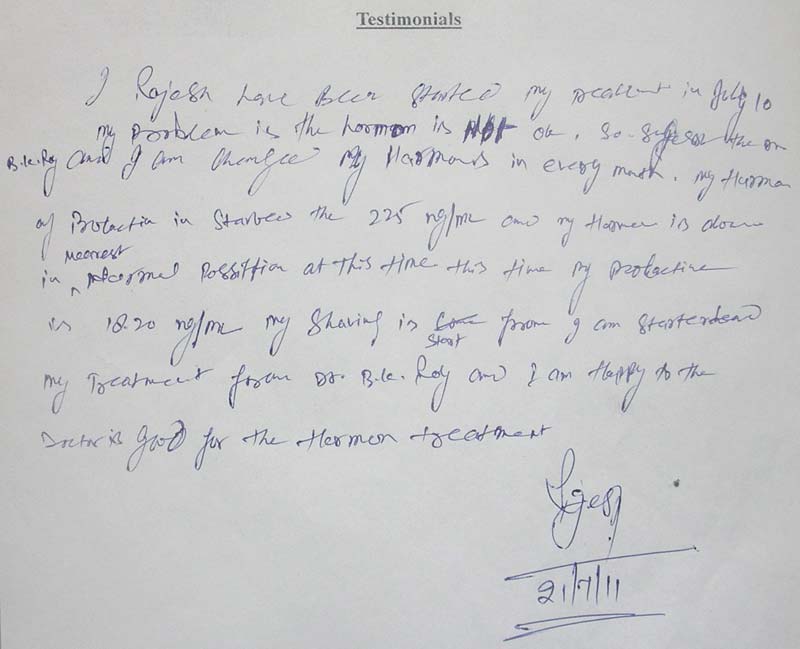 Testimonials
I Rajesh have Been started my treatment in July 10
my problem is the hormon is Not ok. So the
B.K. Roy and I am change my Harmons in every month. my Harmon
of Prolactin in Started the 225 ng/ml and my Harmon is down
nearest
in normal Possition at this time this time my prolactine
is 18.20 ng/ml my Shaving is from I am started
start
my Treatment from Dr. B.K. Roy and I am Happy to the
Doctor is good for the Harmon treatment
Rajesh
21/7/11